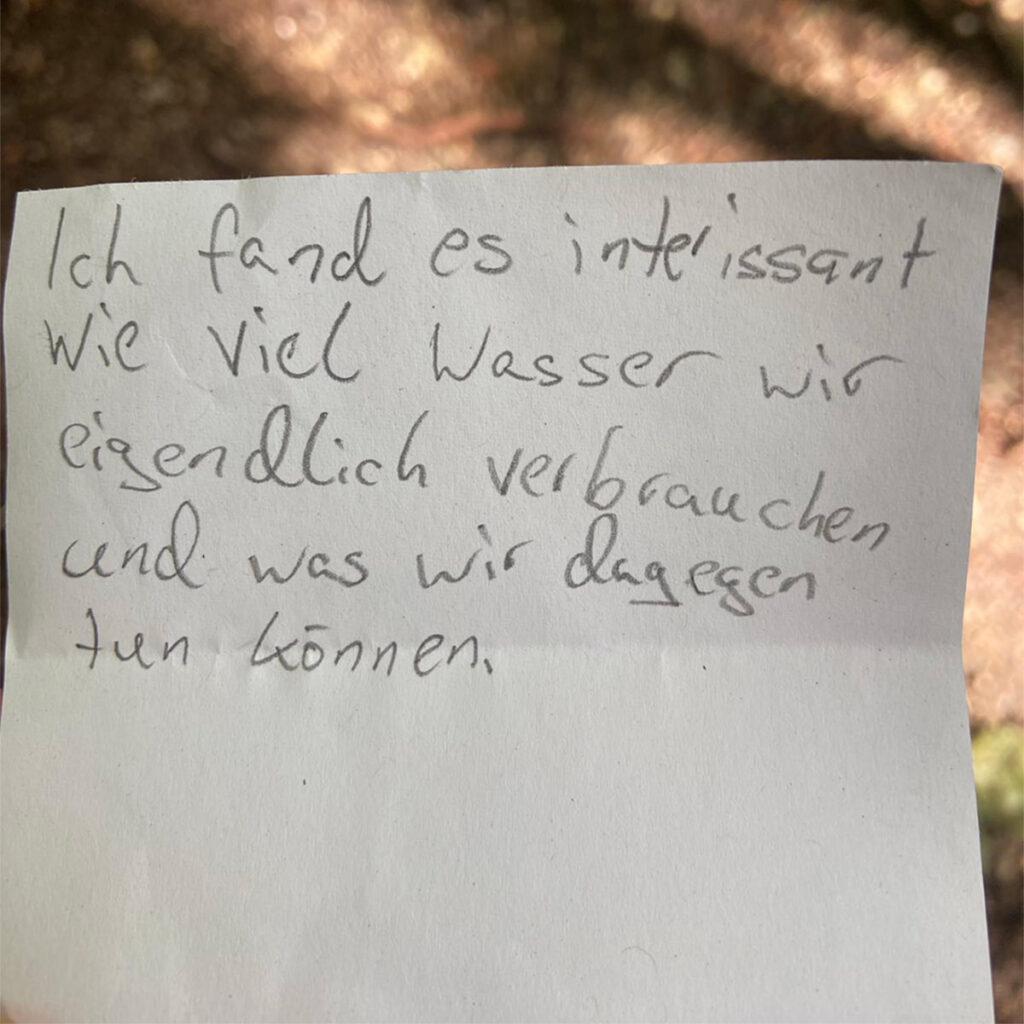 Ich fand es interissant
wie viel Wasser wir
eigendlich verbrauchen
und was wir dagegen
tun können.